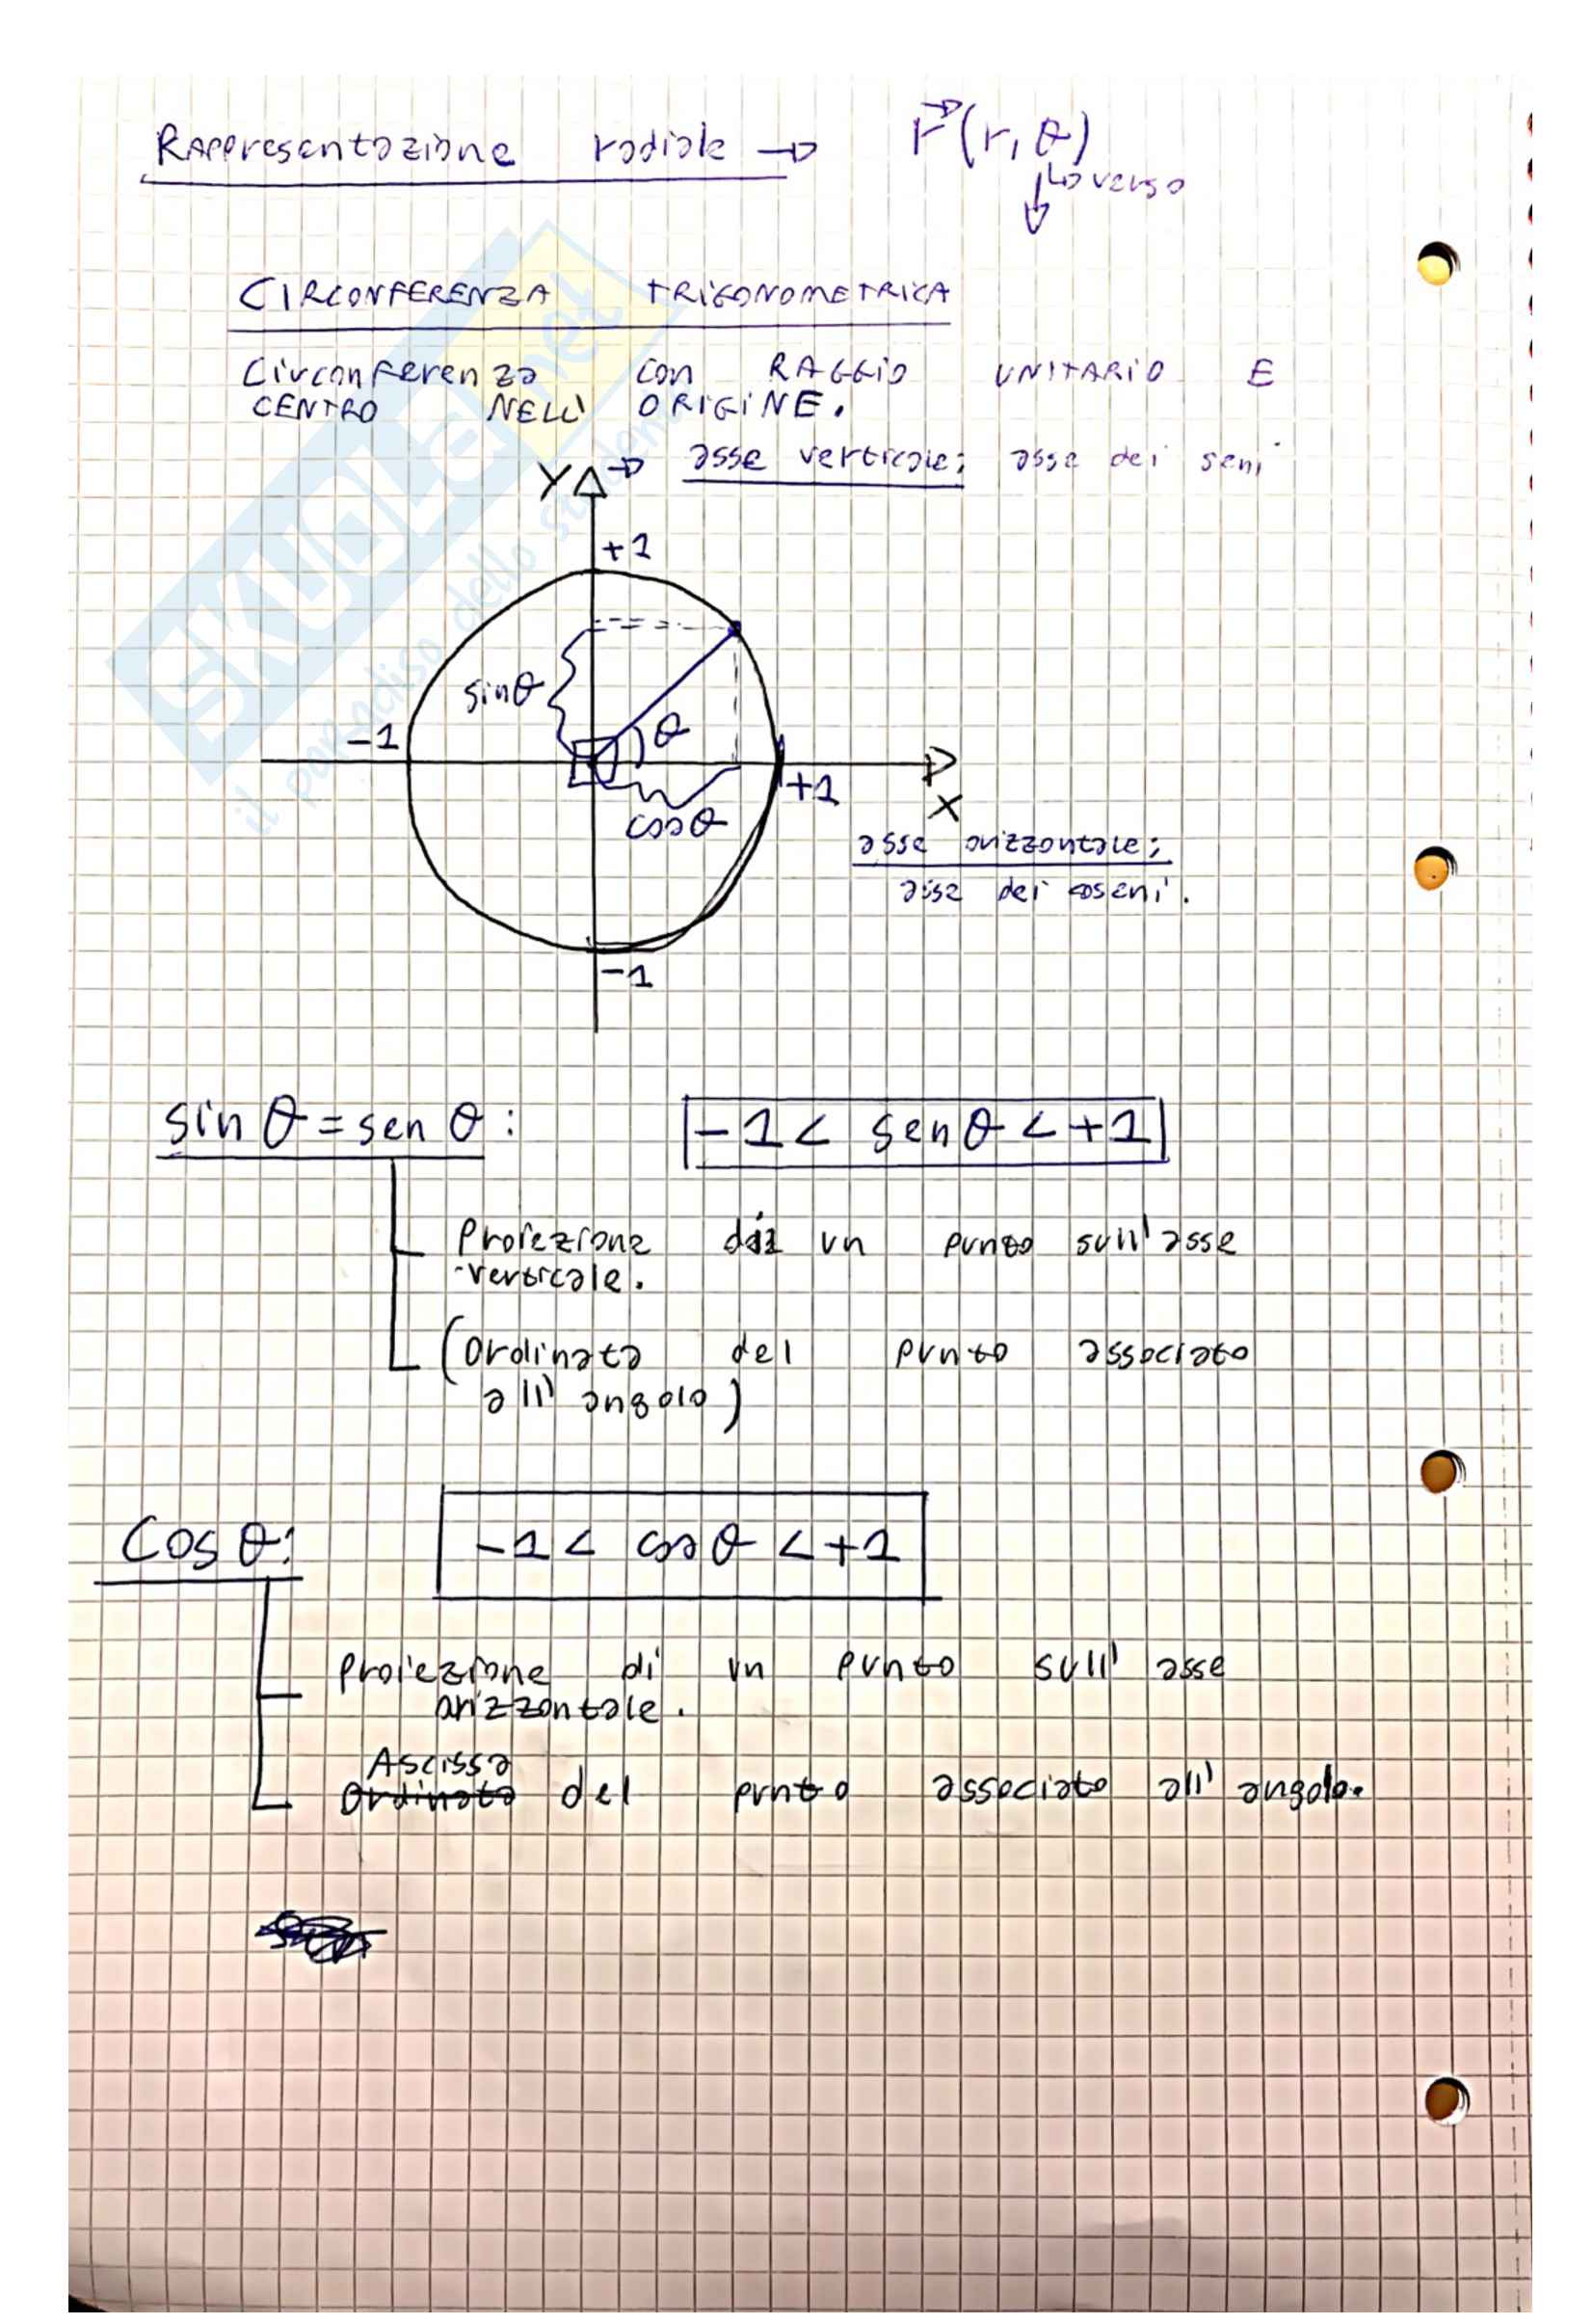 Rappresentazione radiale → r⃗(r, θ)
↳ verso
CIRCONFERENZA TRIGONOMETRICA
Circonferenza con RAGGIO UNITARIO E
CENTRO NELL' ORIGINE.
Y → asse verticale: asse dei seni
+1
sinθ
θ
-1
+1
X
cosθ
asse orizzontale:
asse dei coseni.
-1
sin θ = sen θ : -1 < sen θ < +1
Proiezione di un punto sull'asse
verticale.
(Ordinata del punto associato
all' angolo)
Cos θ: -1 < cos θ < +1
proiezione di un punto sull' asse
orizzontale.
Ascissa
Ordinata del punto associato all' angolo.
SKUOLA.net
il paradiso dello studente